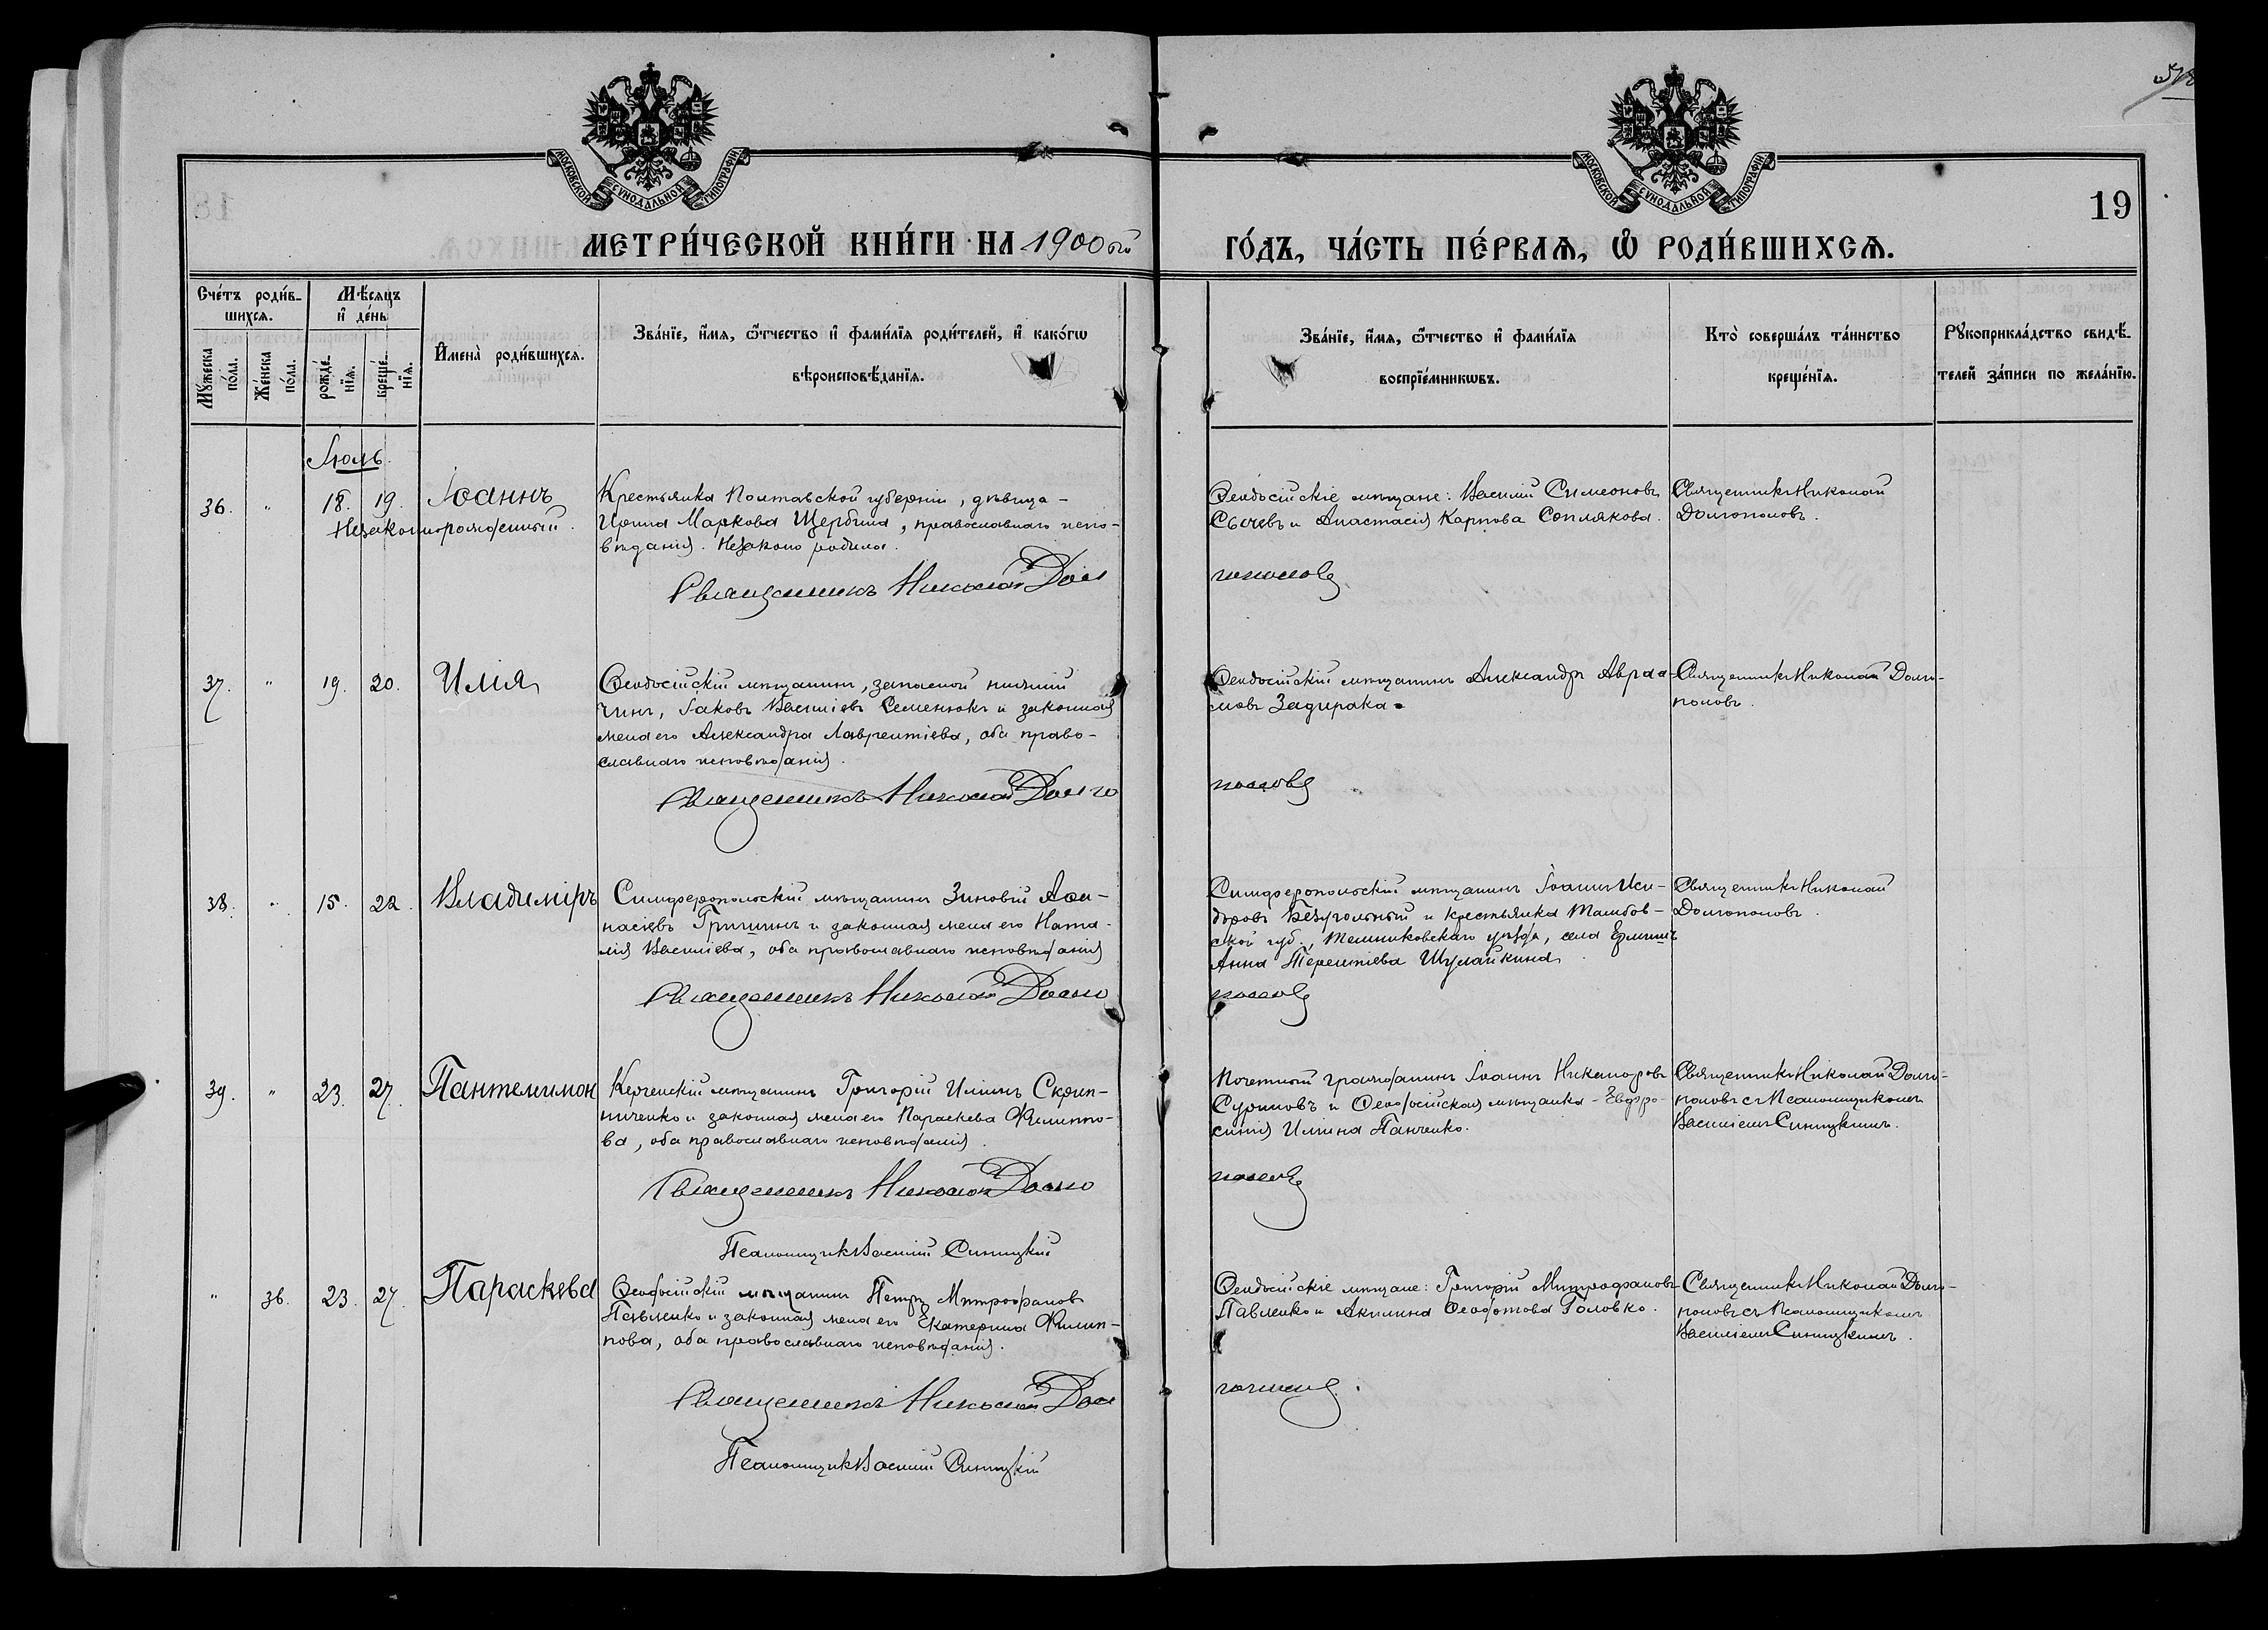 МОСКОВСКОЙ СУНОДАЛЬНОЙ ТИПОГРАФІИ
МОСКОВСКОЙ СУНОДАЛЬНОЙ ТИПОГРАФІИ
18
19
МЕТРИ́ЧЕСКОЙ КНИ́ГИ НА 1900ый
ГО́ДЪ, ЧА́СТЬ ПЕ́РВАѦ, Ѡ҆ РОДИ́ВШИХСѦ.
Сче́тъ роди́в-
шихсѧ.
Мѣ́сѧцъ
и҆ де́нь
Мꙋ́жеска
по́ла.
Же́нска
по́ла.
рожде́-
нїѧ.
креще́-
нїѧ.
И҆мена̀ роди́вшихсѧ.
Зва́нїе, и҆́мѧ, ѻ҆́тчество и҆ фами́лїѧ роди́телей, и҆ како́гѡ
вѣроисповѣ́данїѧ.
Зва́нїе, и҆́мѧ, ѻ҆́тчество и҆ фами́лїѧ
воспрїе́мникѡвъ.
Кто̀ соверша́лъ та́инство
креще́нїѧ.
Рꙋкоприкла́дство свидѣ́-
телей за́писи по жела́нїю.
Іюль.
36. " 18. 19. Іоаннъ
Незаконнорожденный.
Крестьянка Полтавской губерніи, дѣвица -
Ирина Маркова Щербина, православнаго испо-
вѣданія. Незаконно родила.
Священникъ Николай Дол
Ѳеодосійскіе мѣщане: Василій Симеоновъ
Сычевъ и Анастасія Карпова Соплякова.
гополовъ
Священникъ Николай
Долгополовъ.
37. " 19. 20. Илія
Ѳеодосійскій мѣщанинъ, запасной нижній
чинъ, Іаковъ Василіевъ Семенюкъ и законная
жена его Александра Лаврентіева, оба право-
славнаго исповѣданія.
Священникъ Николай Долго
Ѳеодосійскій мѣщанинъ Александръ Авраа-
мовъ Задирака.
половъ
Священникъ Николай Долго-
половъ.
38. " 15. 22. Владиміръ
Симферопольскій мѣщанинъ Зиновій Аѳа-
насіевъ Гришинъ и законная жена его Ната-
лія Василіева, оба православнаго исповѣданія
Священникъ Николай Долго
Симферопольскій мѣщанинъ Іоаннъ Иси-
доровъ Безугольный и крестьянка Тамбов-
ской губ., Темниковскаго уѣзда, села Ермишъ
Анна Терентіева Шулайкина.
половъ
Священникъ Николай
Долгополовъ.
39. " 23. 27. Пантелимон
Керченскій мѣщанинъ Григорій Иліинъ Скрип-
ниченко и законная жена его Параскева Филиппо-
ва, оба православнаго исповѣданія.
Священникъ Николай Долго
Псаломщикъ Василій Синицкій
Почетный гражданинъ Іоаннъ Никаноровъ
Суриновъ и Ѳеодосійская мѣщанка - Евфро-
синія Иліина Панченко.
половъ
Священникъ Николай Долго-
половъ съ Псаломщикомъ
Василіемъ Синицкимъ.
" 36. 23. 27. Параскева
Ѳеодосійскій мѣщанинъ Петръ Митрофановъ
Павленко и законная жена его Екатерина Филип-
пова, оба православнаго исповѣданія.
Священникъ Николай Дол
Псаломщикъ Василій Синицкій
Ѳеодосійскіе мѣщане: Григорій Митрофановъ
Павленко и Акилина Ѳеодотова Головко.
гополовъ.
Священникъ Николай Долго-
половъ съ Псаломщикомъ
Василіемъ Синицкимъ.